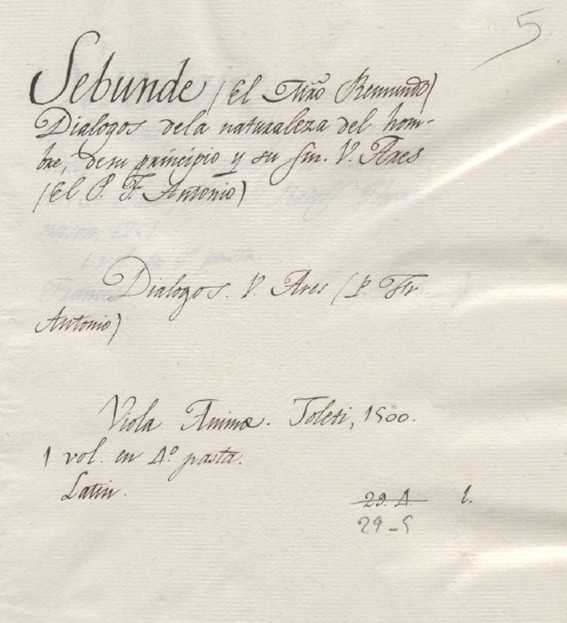 5
Sebunde (El Mro Remundo)
Dialogos dela naturaleza del hom-
bre, de su principio y su fin. V. Ares
(El P. F. Antonio)
Dialogos. V. Ares (P. Fr
Antonio)
Viola Animæ. Toleti, 1500.
1 vol. en 4º pasta.
Latin.
29. 4. l.
29-5